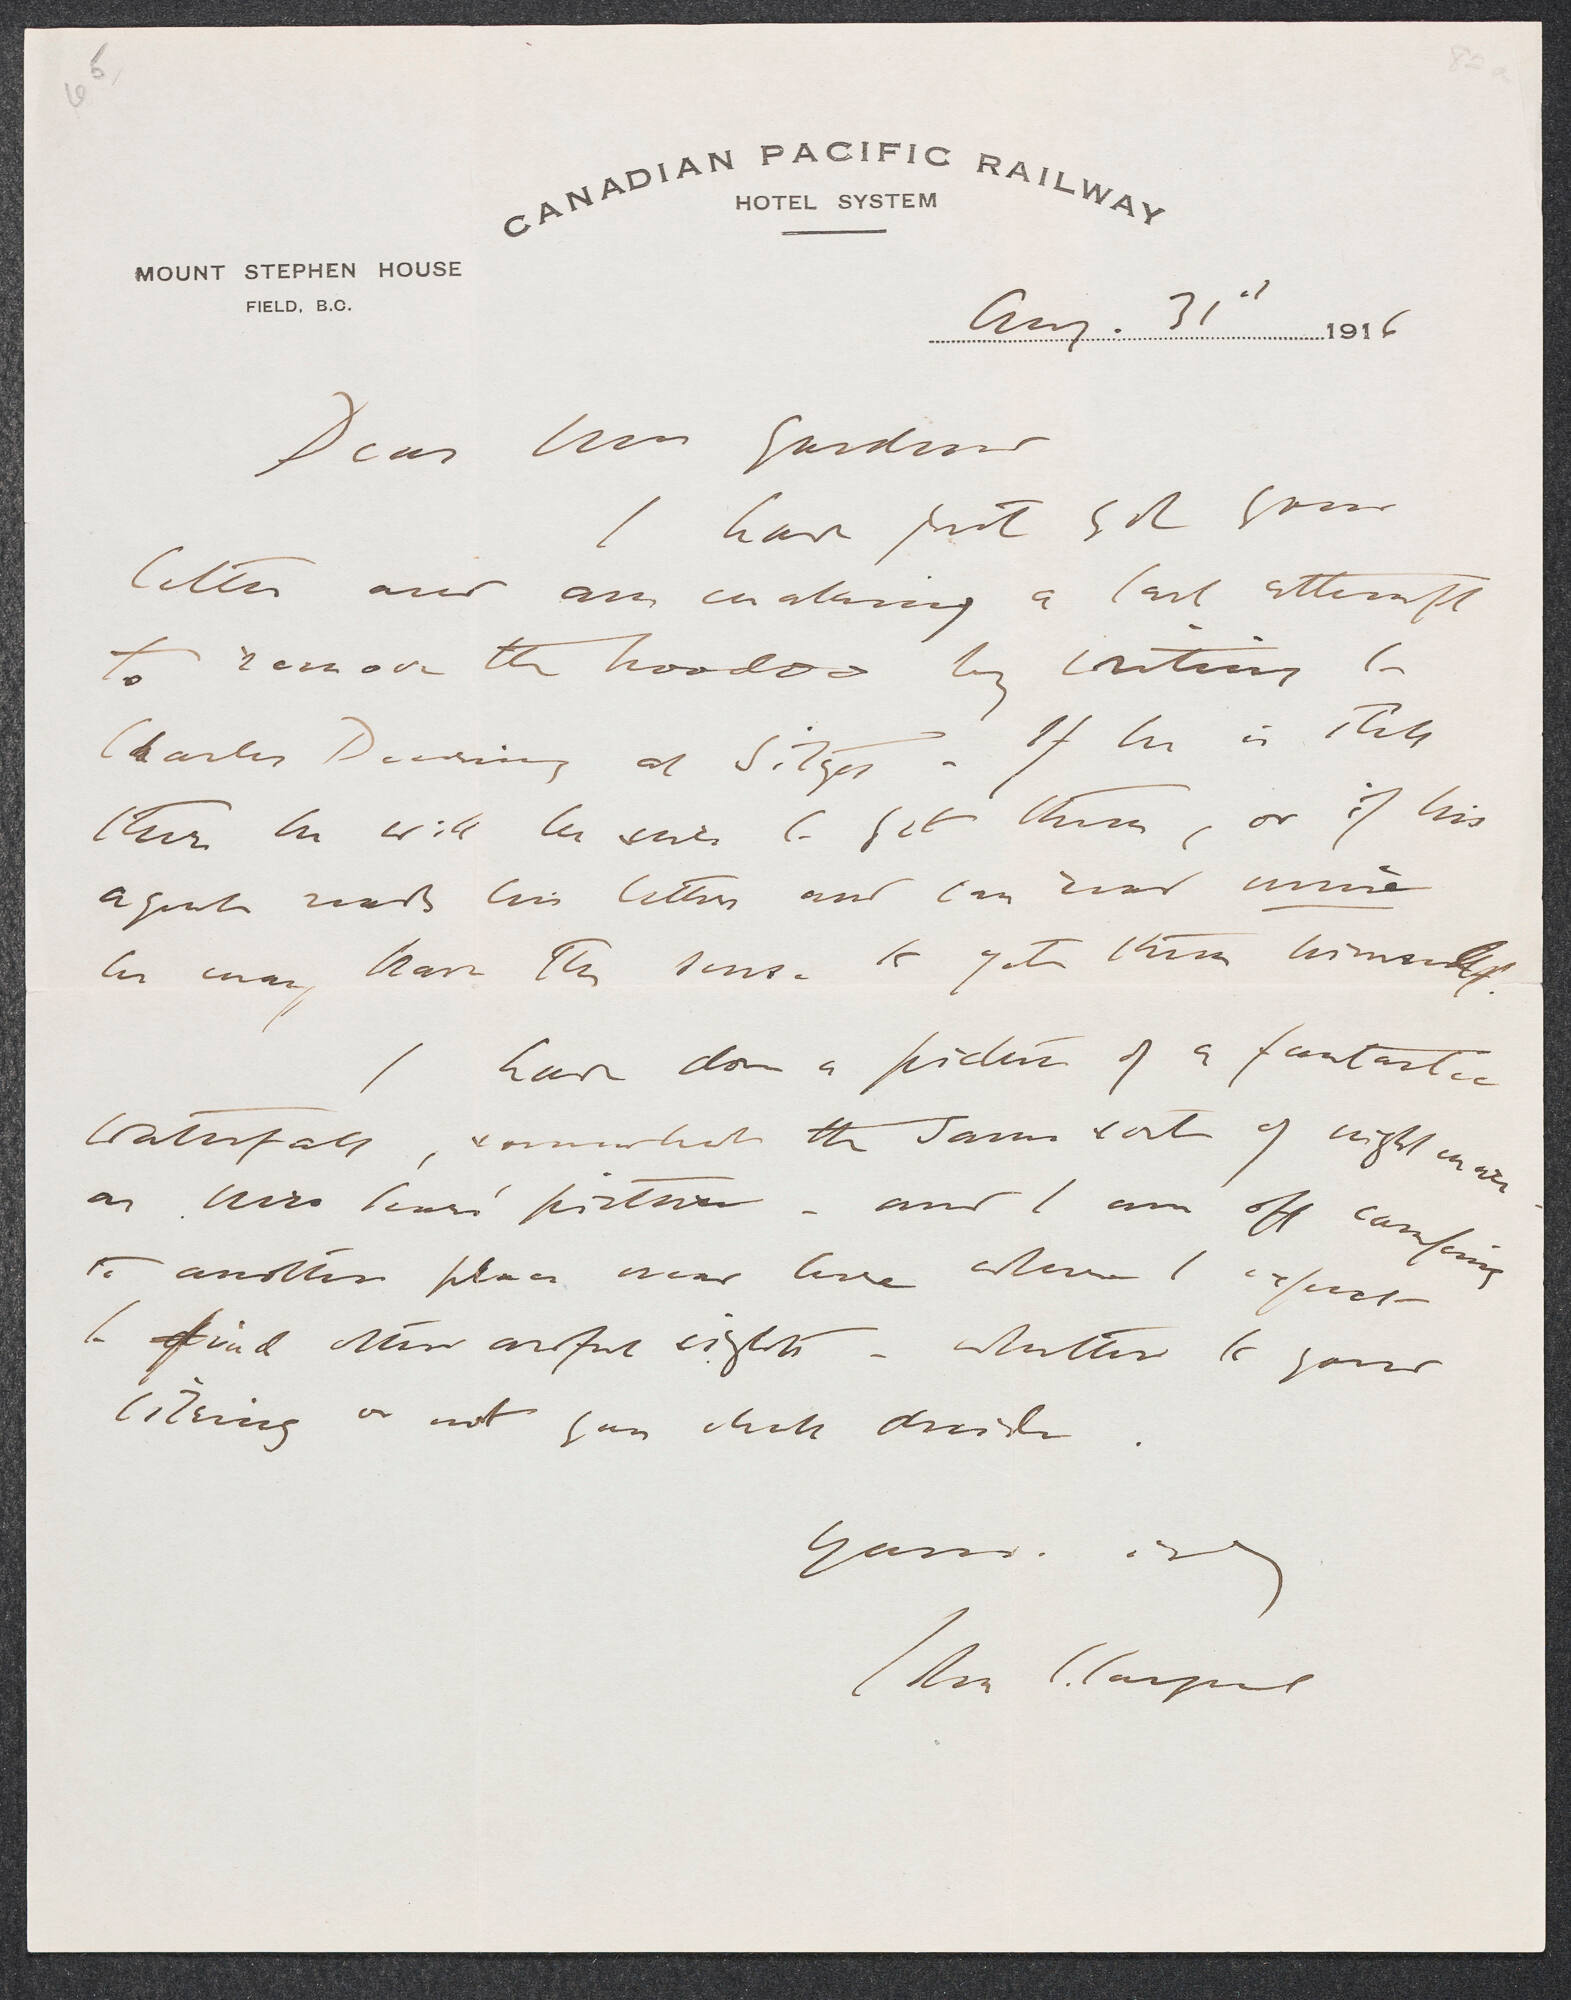 65,
CANADIAN PACIFIC RAILWAY
HOTEL SYSTEM
MOUNT STEPHEN HOUSE
FIELD, B.C.
Aug. 31st 1916
Dear Mrs Gardner
I have just got your
letter and am making a last attempt
to remove the hoodoo by writing to
Charles Deering at Sitges - If he is still
there he will be sure to get them, or if his
agent reads his letters and can read mine
he may have the sense to get them himself.
I have done a picture of a fantastic
waterfall, somewhat the same sort of nightmare
as picture - and I am off camping
to another place near here where I expect
to find other awful sights - whether to your
liking or not you shall decide.
Yours truly
John S. Sargent